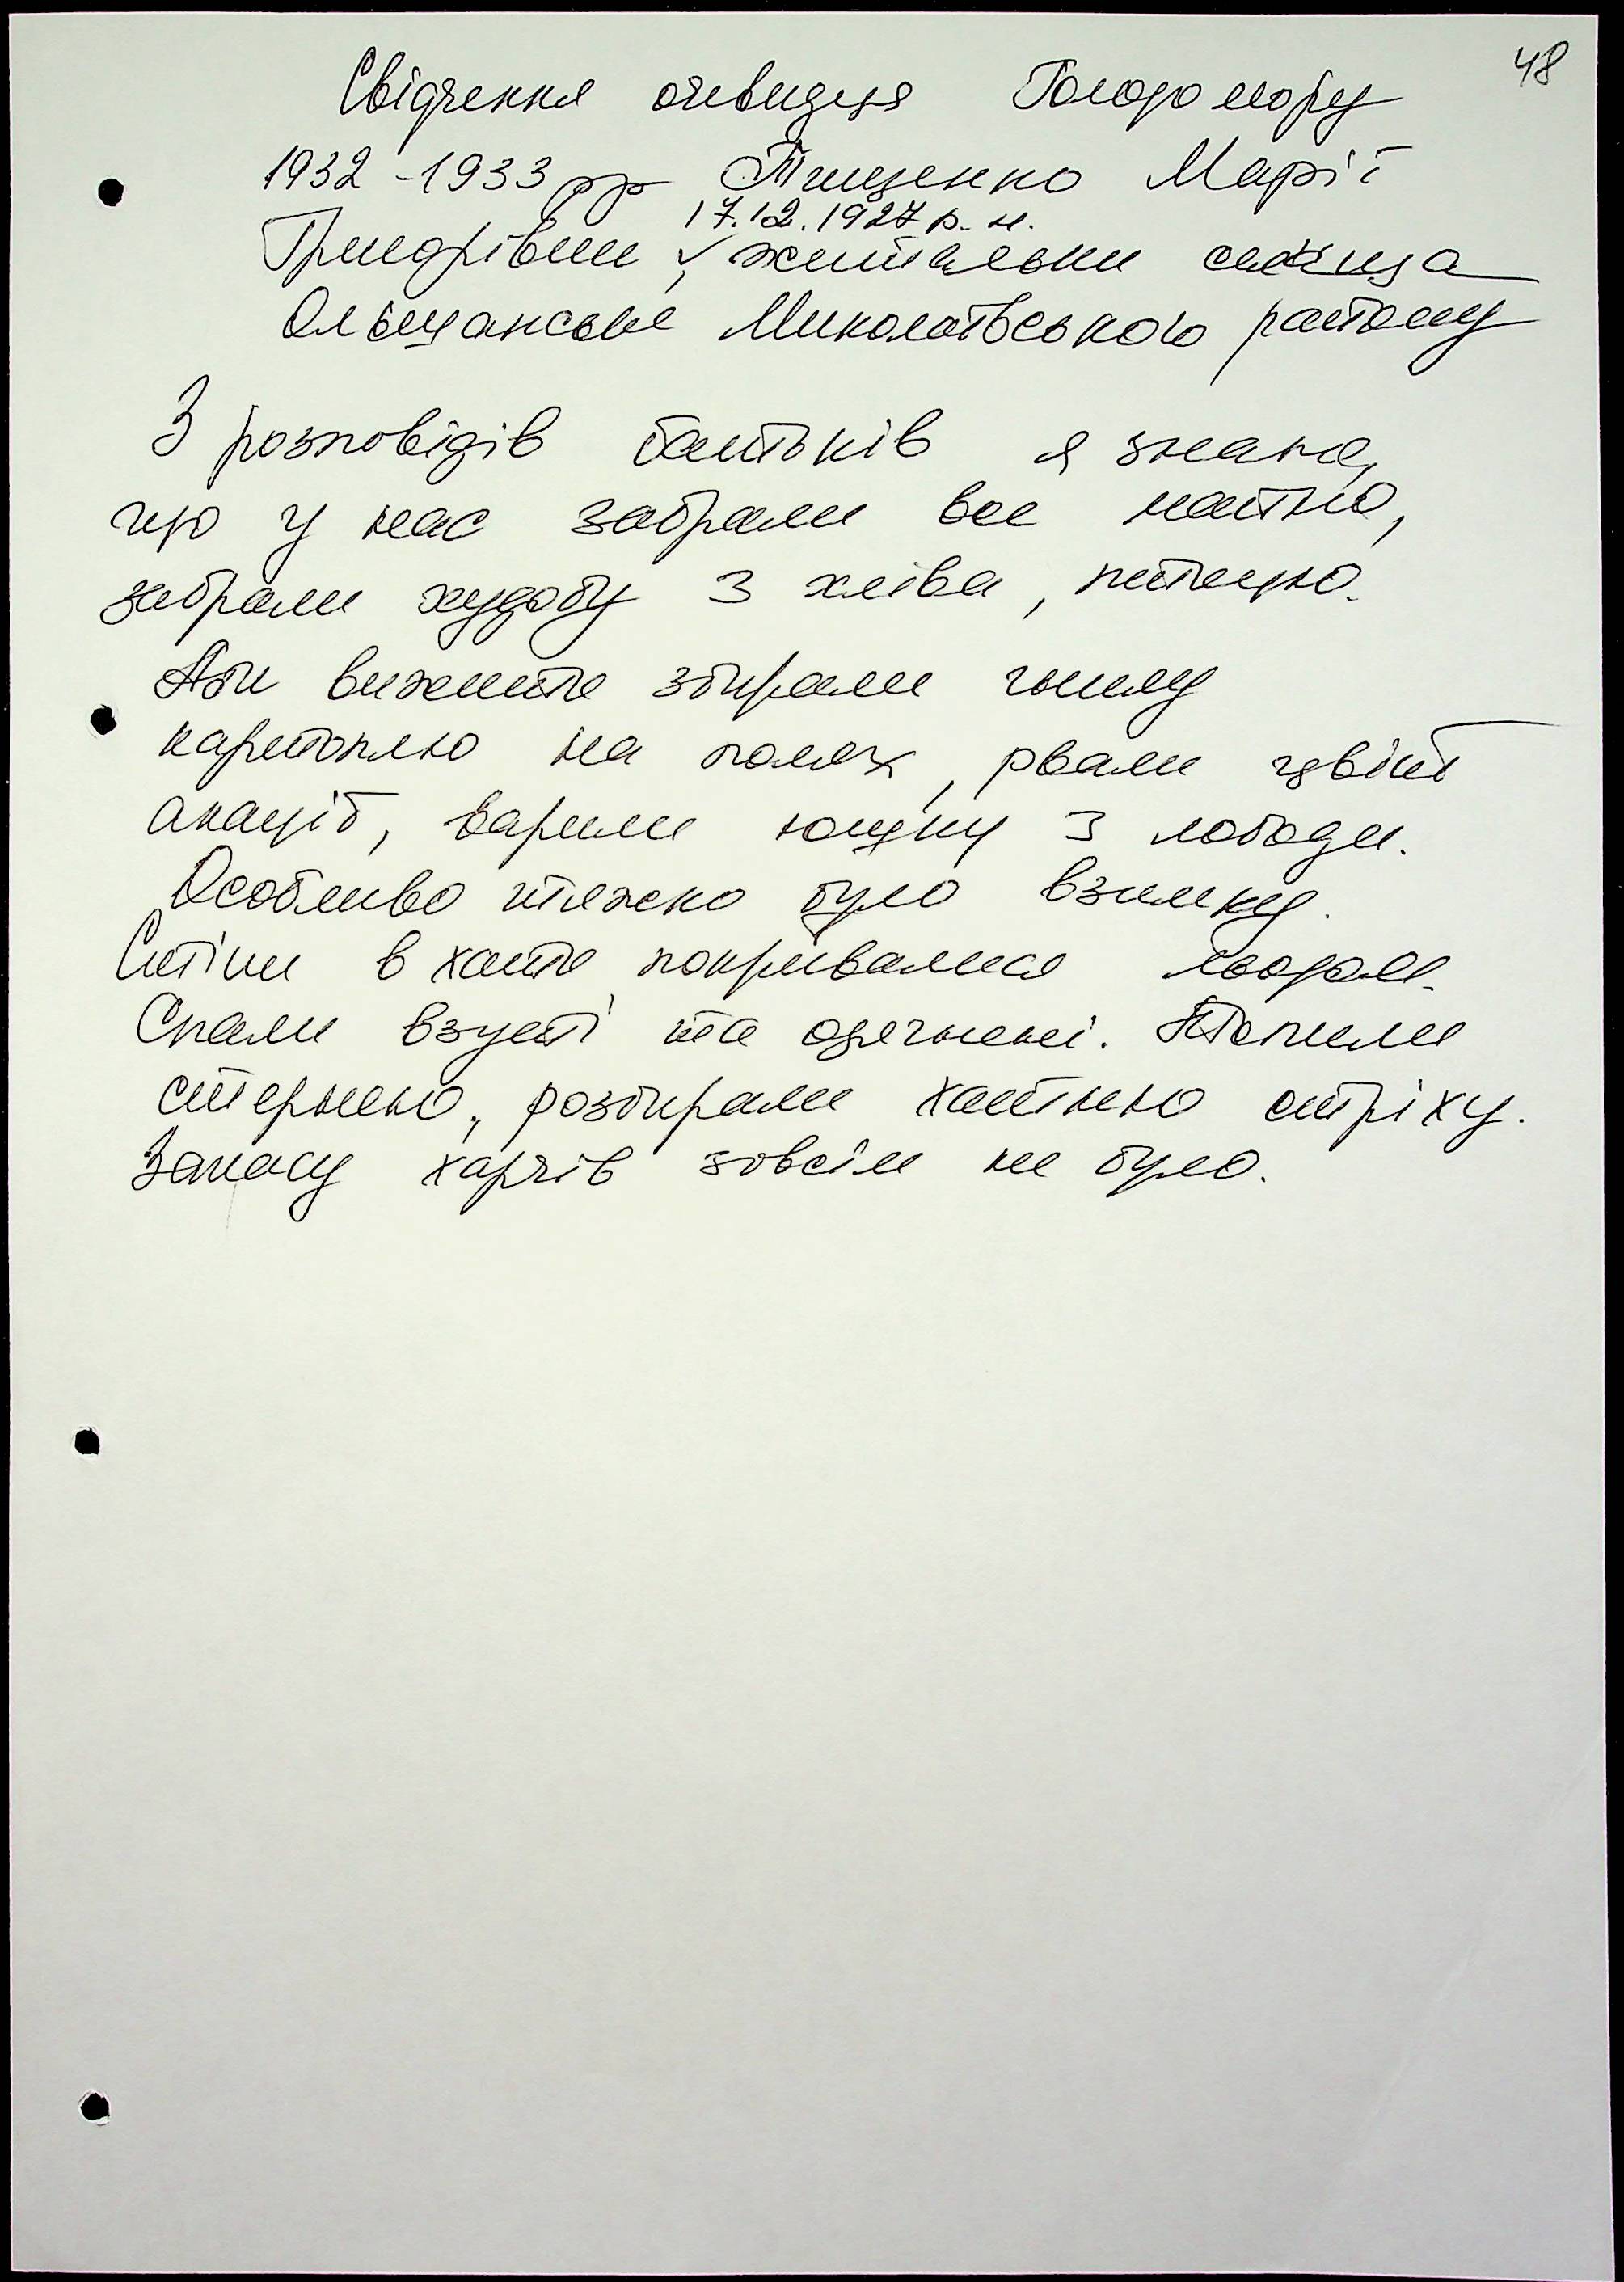 48
Свідчення очевидця Голодомору
1932 - 1933 рр Тищенко Марії
17.12.1927 р. н.
Григорівни, жительки селища
Ольшанське Миколаївського району
З розповідів батьків я знаю,
що у нас забрали все майно,
забрали худобу з хліва, птицю.
Аби вижити збирали гнилу
картоплю на полях, рвали цвіт
акацій, варили юшку з лободи.
Особливо тяжко було взимку.
Стіни в хаті покривалися льодом.
Спали взуті та одягнені. Топили
стернею, розбирали хатню стріху.
Запасу харчів зовсім не було.